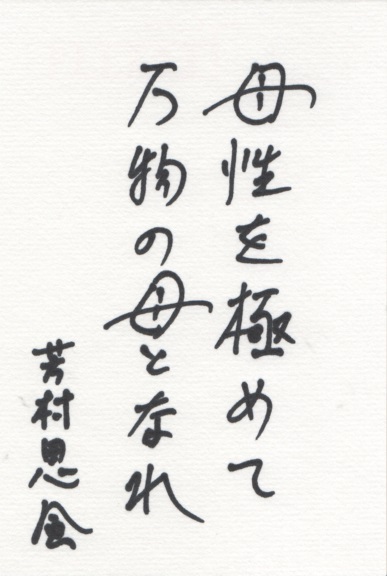 母性を極めて
万物の母となれ
芳村思風